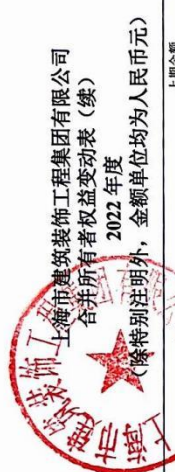 上海市建筑装饰工程集团有限公司
合并所有者权益变动表（续）
2022 年度
（除特别注明外，金额单位均为人民币元）
上期金额